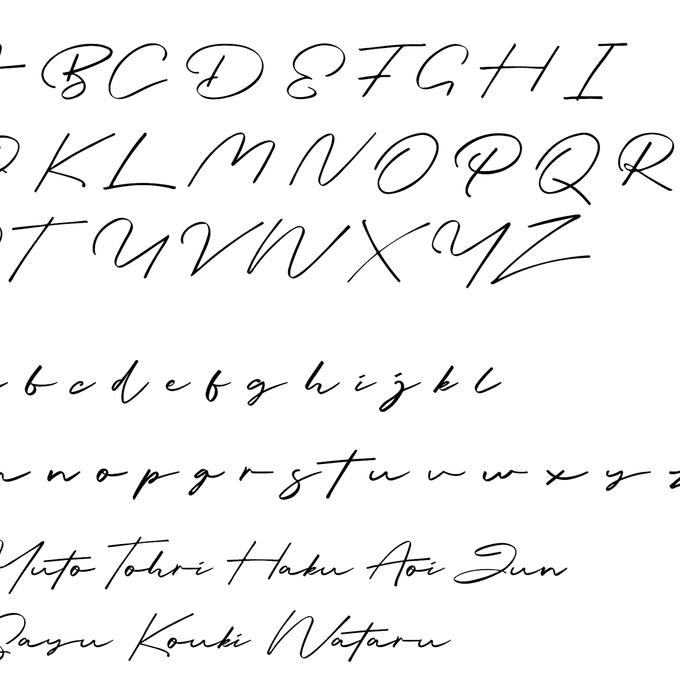 B C D E F G H I
K L M N O P Q R
T U V W X Y Z
b c d e f g h i j k l
n o p q r s t u v w x y z
Yuto Tohri Haku Aoi Jun
Sayu Kouki Wataru